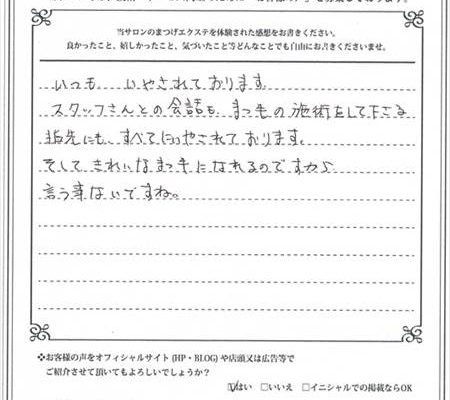 当サロンのまつげエクステを体験された感想をお書きください。
良かったこと、嬉しかったこと、気づいたこと等どんなことでも自由にお書きくださいませ。
いつも いやされております。
スタッフさんとの会話も、まつ毛の施術をして下さる
指先にも、すべていやされております。
そして きれいなまつ毛になれるのですから
言う事ないですね。
❖お客様の声をオフィシャルサイト(HP・BLOG)や店頭又は広告等で
ご紹介させて頂いてもよろしいでしょうか?
☑はい □いいえ □イニシャルでの掲載ならOK